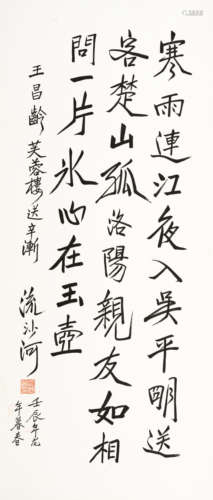 寒雨連江夜入吴平明送
客楚山孤洛陽親友如相
問一片氷心在玉壺
王昌齡芙蓉樓送辛漸
流沙河
壬辰年龙
年暮春